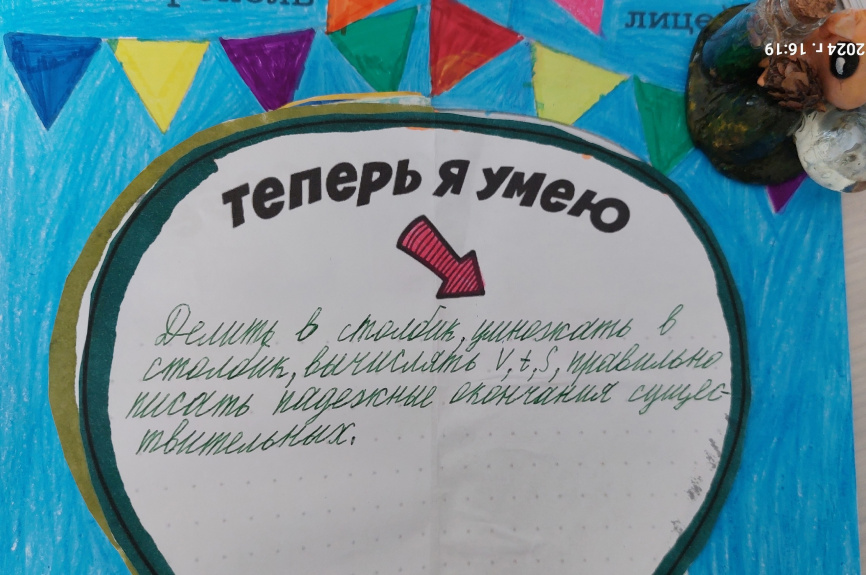 лице
2024 г. 16:19
теперь я умею
Делить в столбик, умножать в
столбик, вычислять V, t, S, правильно
писать падежные окончания сущес-
твительных.